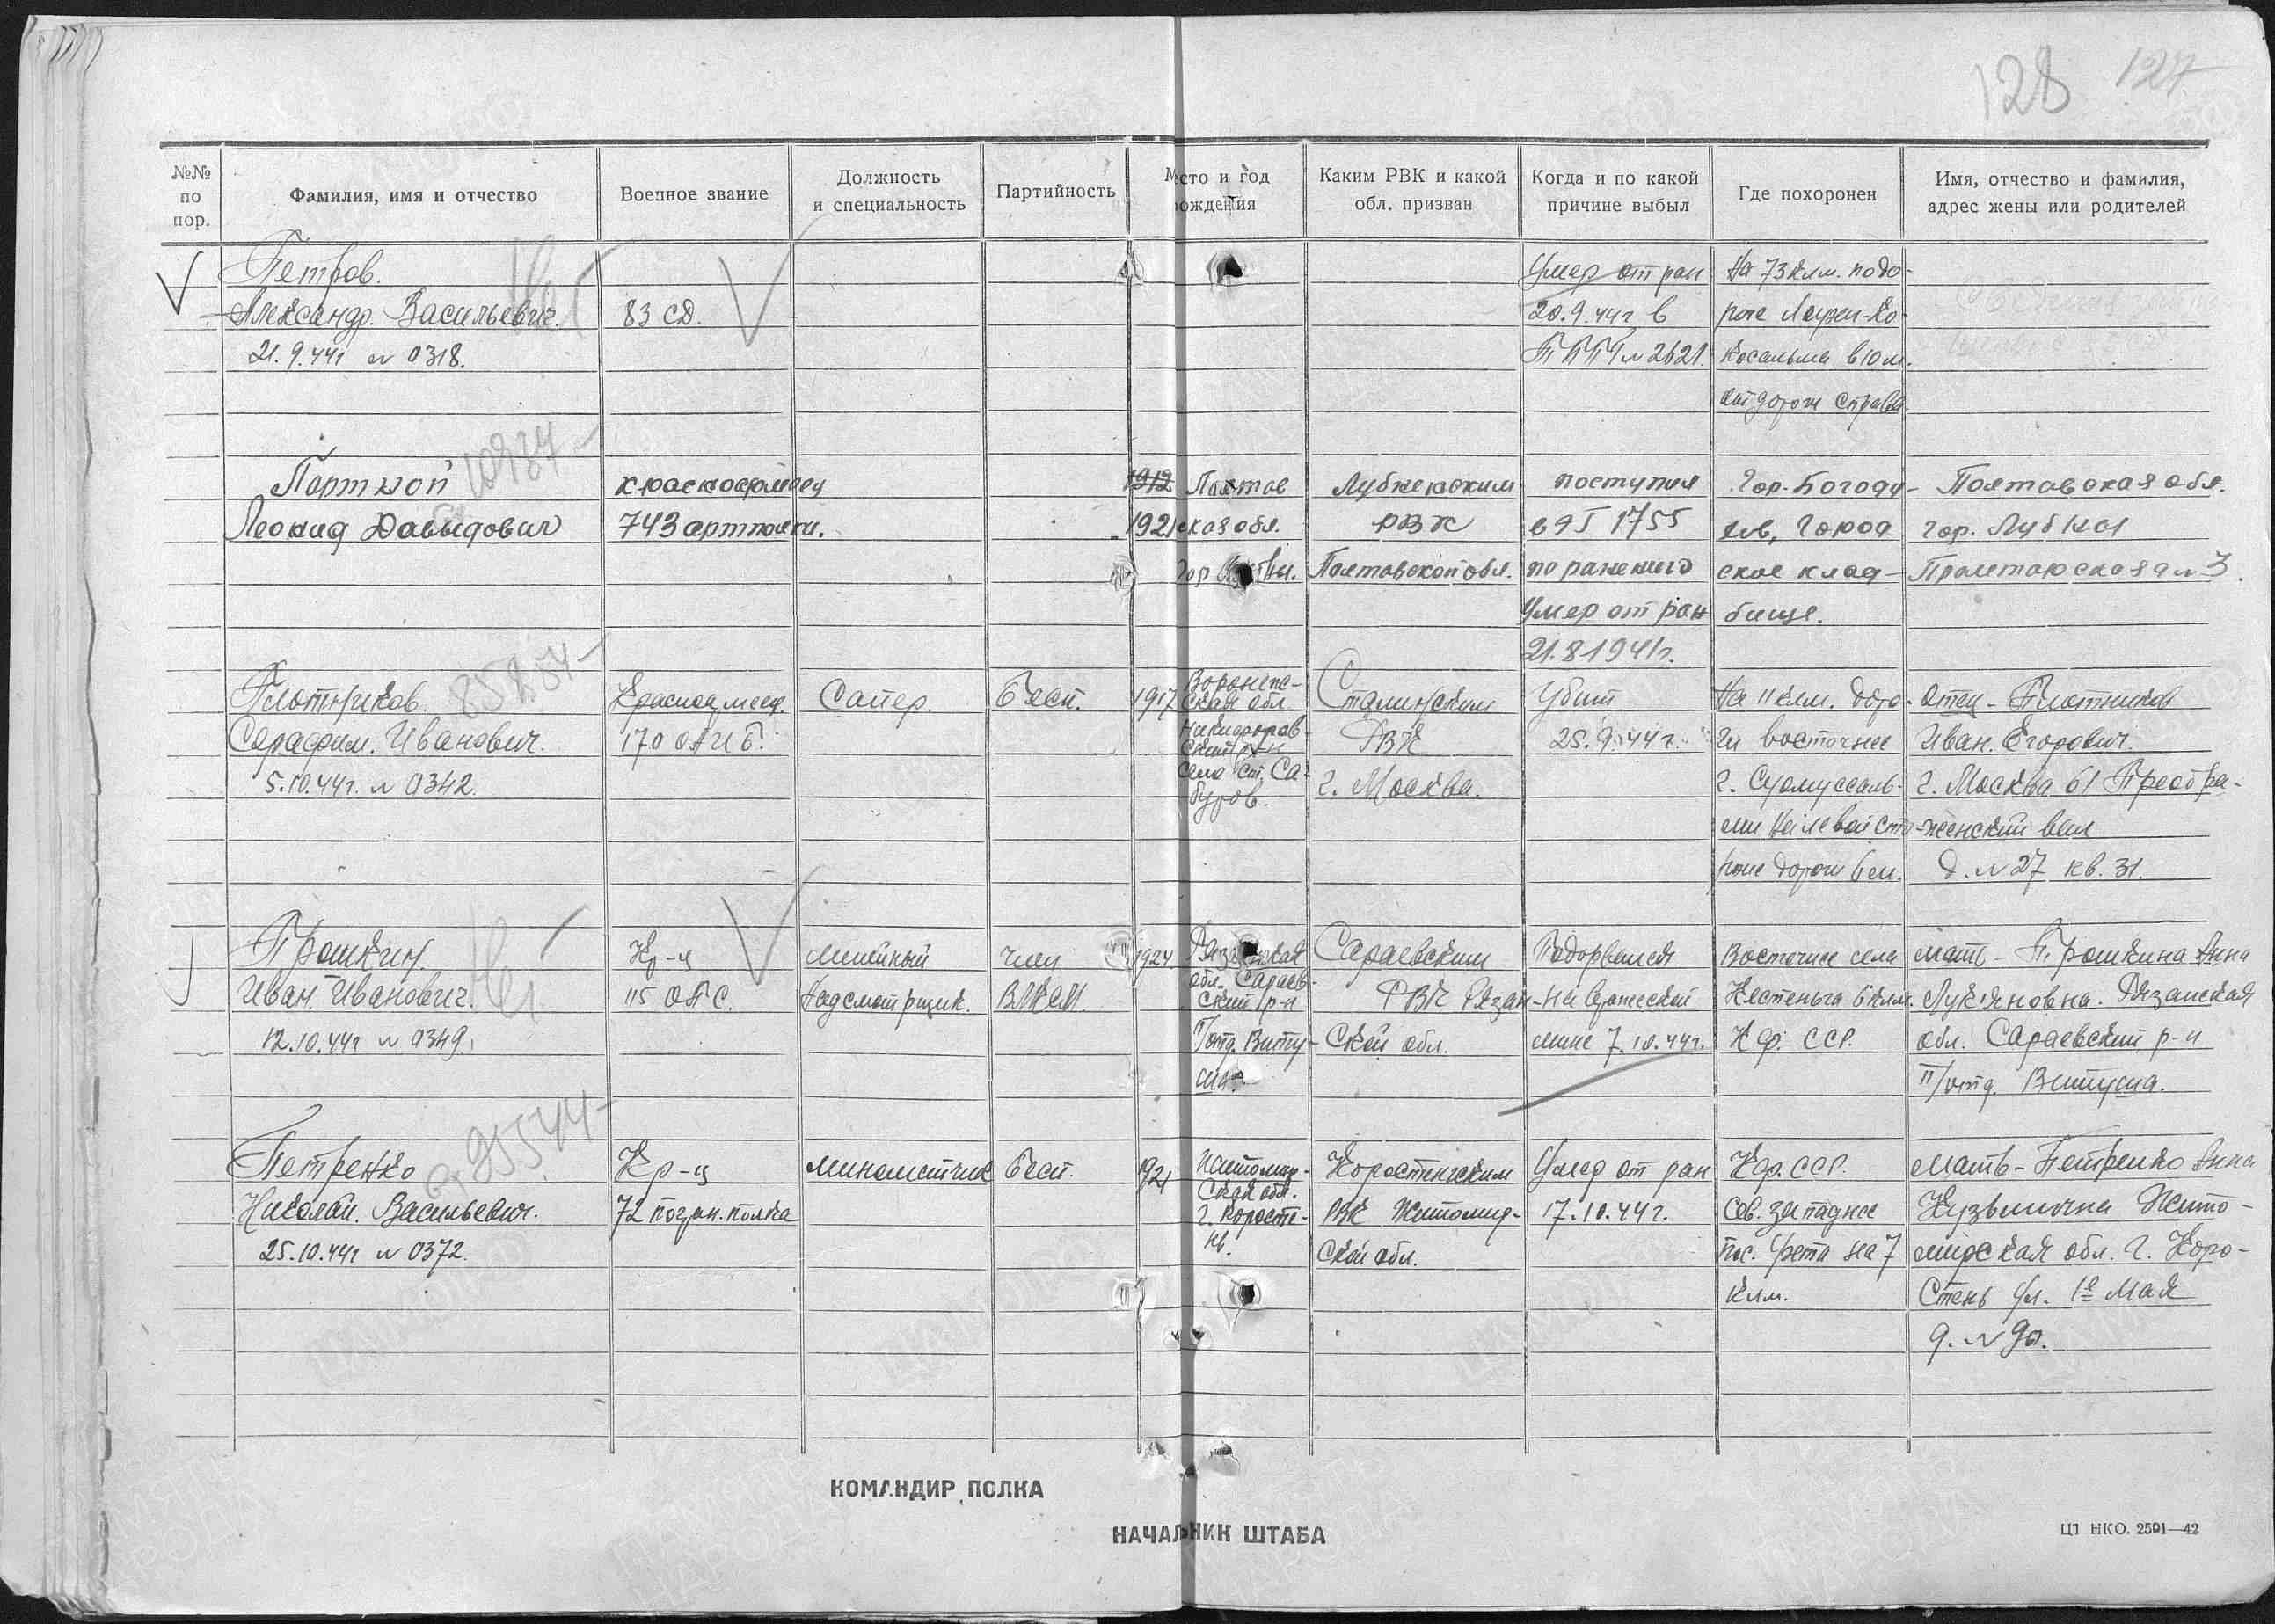 128 127
№№ по пор.
Фамилия, имя и отчество
Военное звание
Должность и специальность
Партийность
Место и год рождения
Каким РВК и какой обл. призван
Когда и по какой причине выбыл
Где похоронен
Имя, отчество и фамилия, адрес жены или родителей
Петров.
Александр. Васильевич.
21.9.44г № 0318.
83 СД.
Умер от ран
20.9.44г в
ППГ № 2621.
На 73 клм. по до-
роге
в 10 м.
от дороги справа.
Портной
Леонид Давыдович
10937
красноармеец
743 артполка.
1912
1921
Полтав
ская обл.
гор.
Лубненским
РВК
Полтавской обл.
поступил
в ЭГ 1755
по ранению
Умер от ран
21.8.1941г.
Гор. Богоду-
хов, Город
ское клад-
бище.
Полтавская обл.
гор. Лубны
№ 3.
Плотников.
Серафим. Иванович.
5.10.44г. № 0342.
85254
Красноармеец.
170 ОАИБ.
Сапер.
Бесп.
1917
Воронеж-
ская обл.
ский р-н
село ст. Са-
буров.
Сталинским
РВК
г. Москва.
Убит
25.9.44г.
На 11 клм. доро-
ги восточнее
г. Суомуссаль-
ми на левой сто-
роне дороги 6 м.
Отец - Плотников
Иван. Егорович.
г. Москва 61 Преобра-
женский вал
д. № 27 кв. 31.
Прошкин.
Иван. Иванович.
12.10.44г № 0349.
Кр-ц
115 ОПС.
линейный
Надсмотрщик.
член
ВЛКСМ.
1924
Рязанская
обл. Сараев-
ский р-н
п/отд. Виту-
ша.
Сараевским
РВК Рязан-
ской обл.
Подорвался
на вражеской
мине 7.10.44г.
Восточнее села
Кестеньга 6 клм.
Кф. ССР.
мать - Прошкина Анна
Лукяновна. Рязанская
обл. Сараевский р-н
п/отд. Витуша.
Петренко
Николай. Васильевич.
25.10.44г № 0372.
95544
Кр-ц
72 погран. полка
минометчик
Бесп.
1921
Житомир-
ская обл.
г. Коросте-
нь.
Коростенским
РВК Житомир-
ской обл.
Умер от ран
17.10.44г.
Кф. ССР.
Сев. западнее
пос. Ухта на 7
клм.
Мать - Петренко Анна
Кузьминична Жито-
мирская обл. г. Коро-
стень ул. 1е Мая
д. № 90.
КОМАНДИР ПОЛКА
НАЧАЛЬНИК ШТАБА
ЦТ НКО. 2501—42